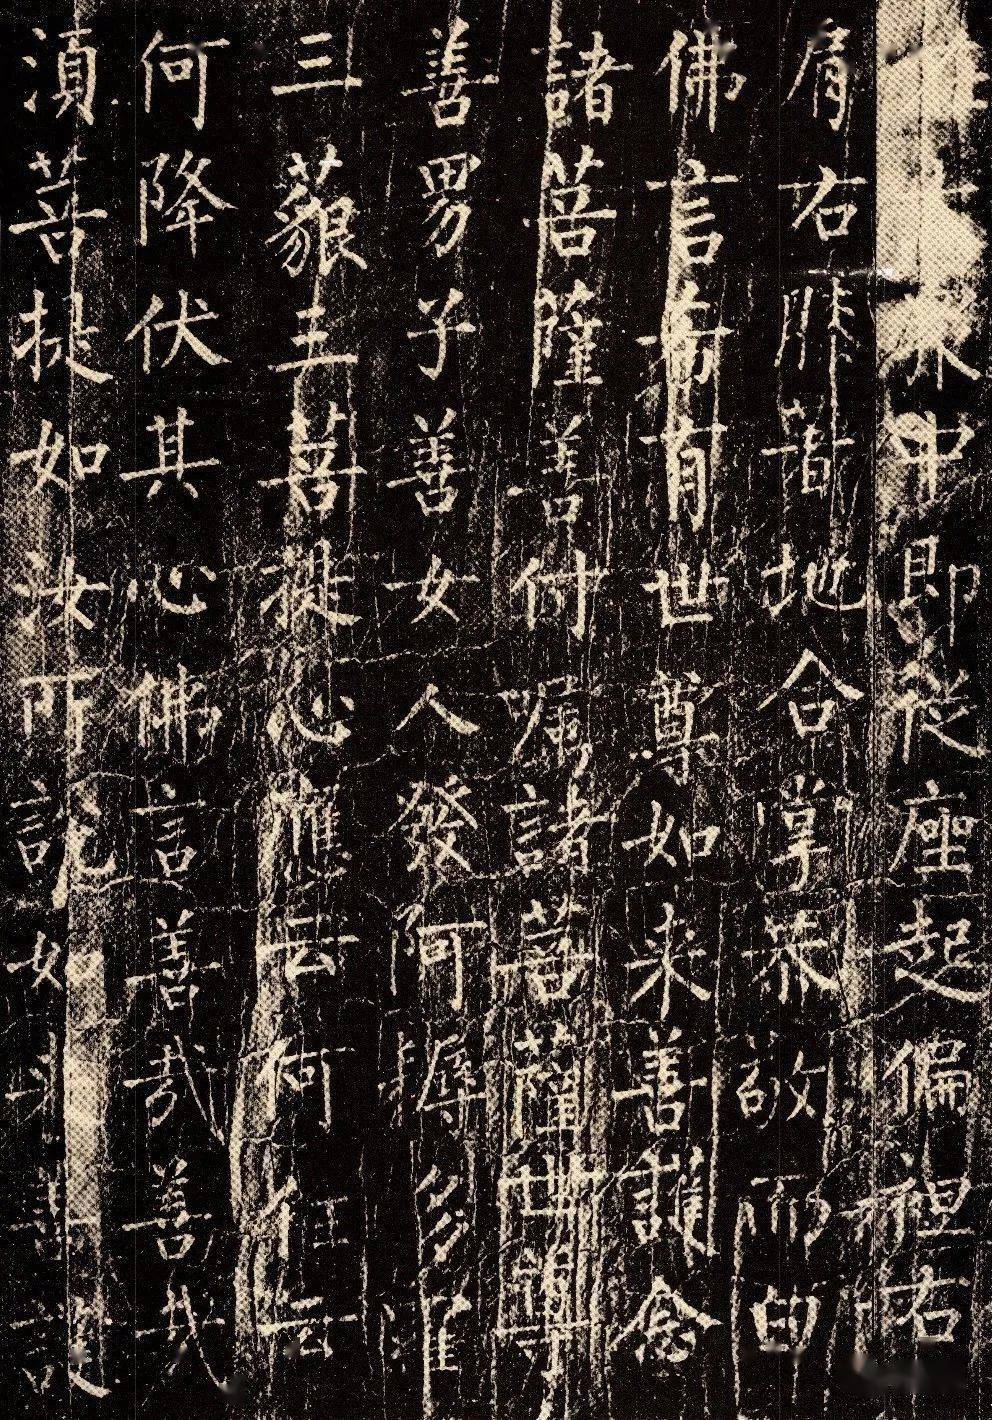 衆中即從座起偏袒右
肩右膝著地合掌恭敬而白
佛言希有世尊如来善護念
諸菩薩善付嘱諸菩薩世尊
善男子善女人發阿耨多羅
三藐三菩提心應云何住云
何降伏其心佛言善哉善哉
湏菩提如汝所說如来善護